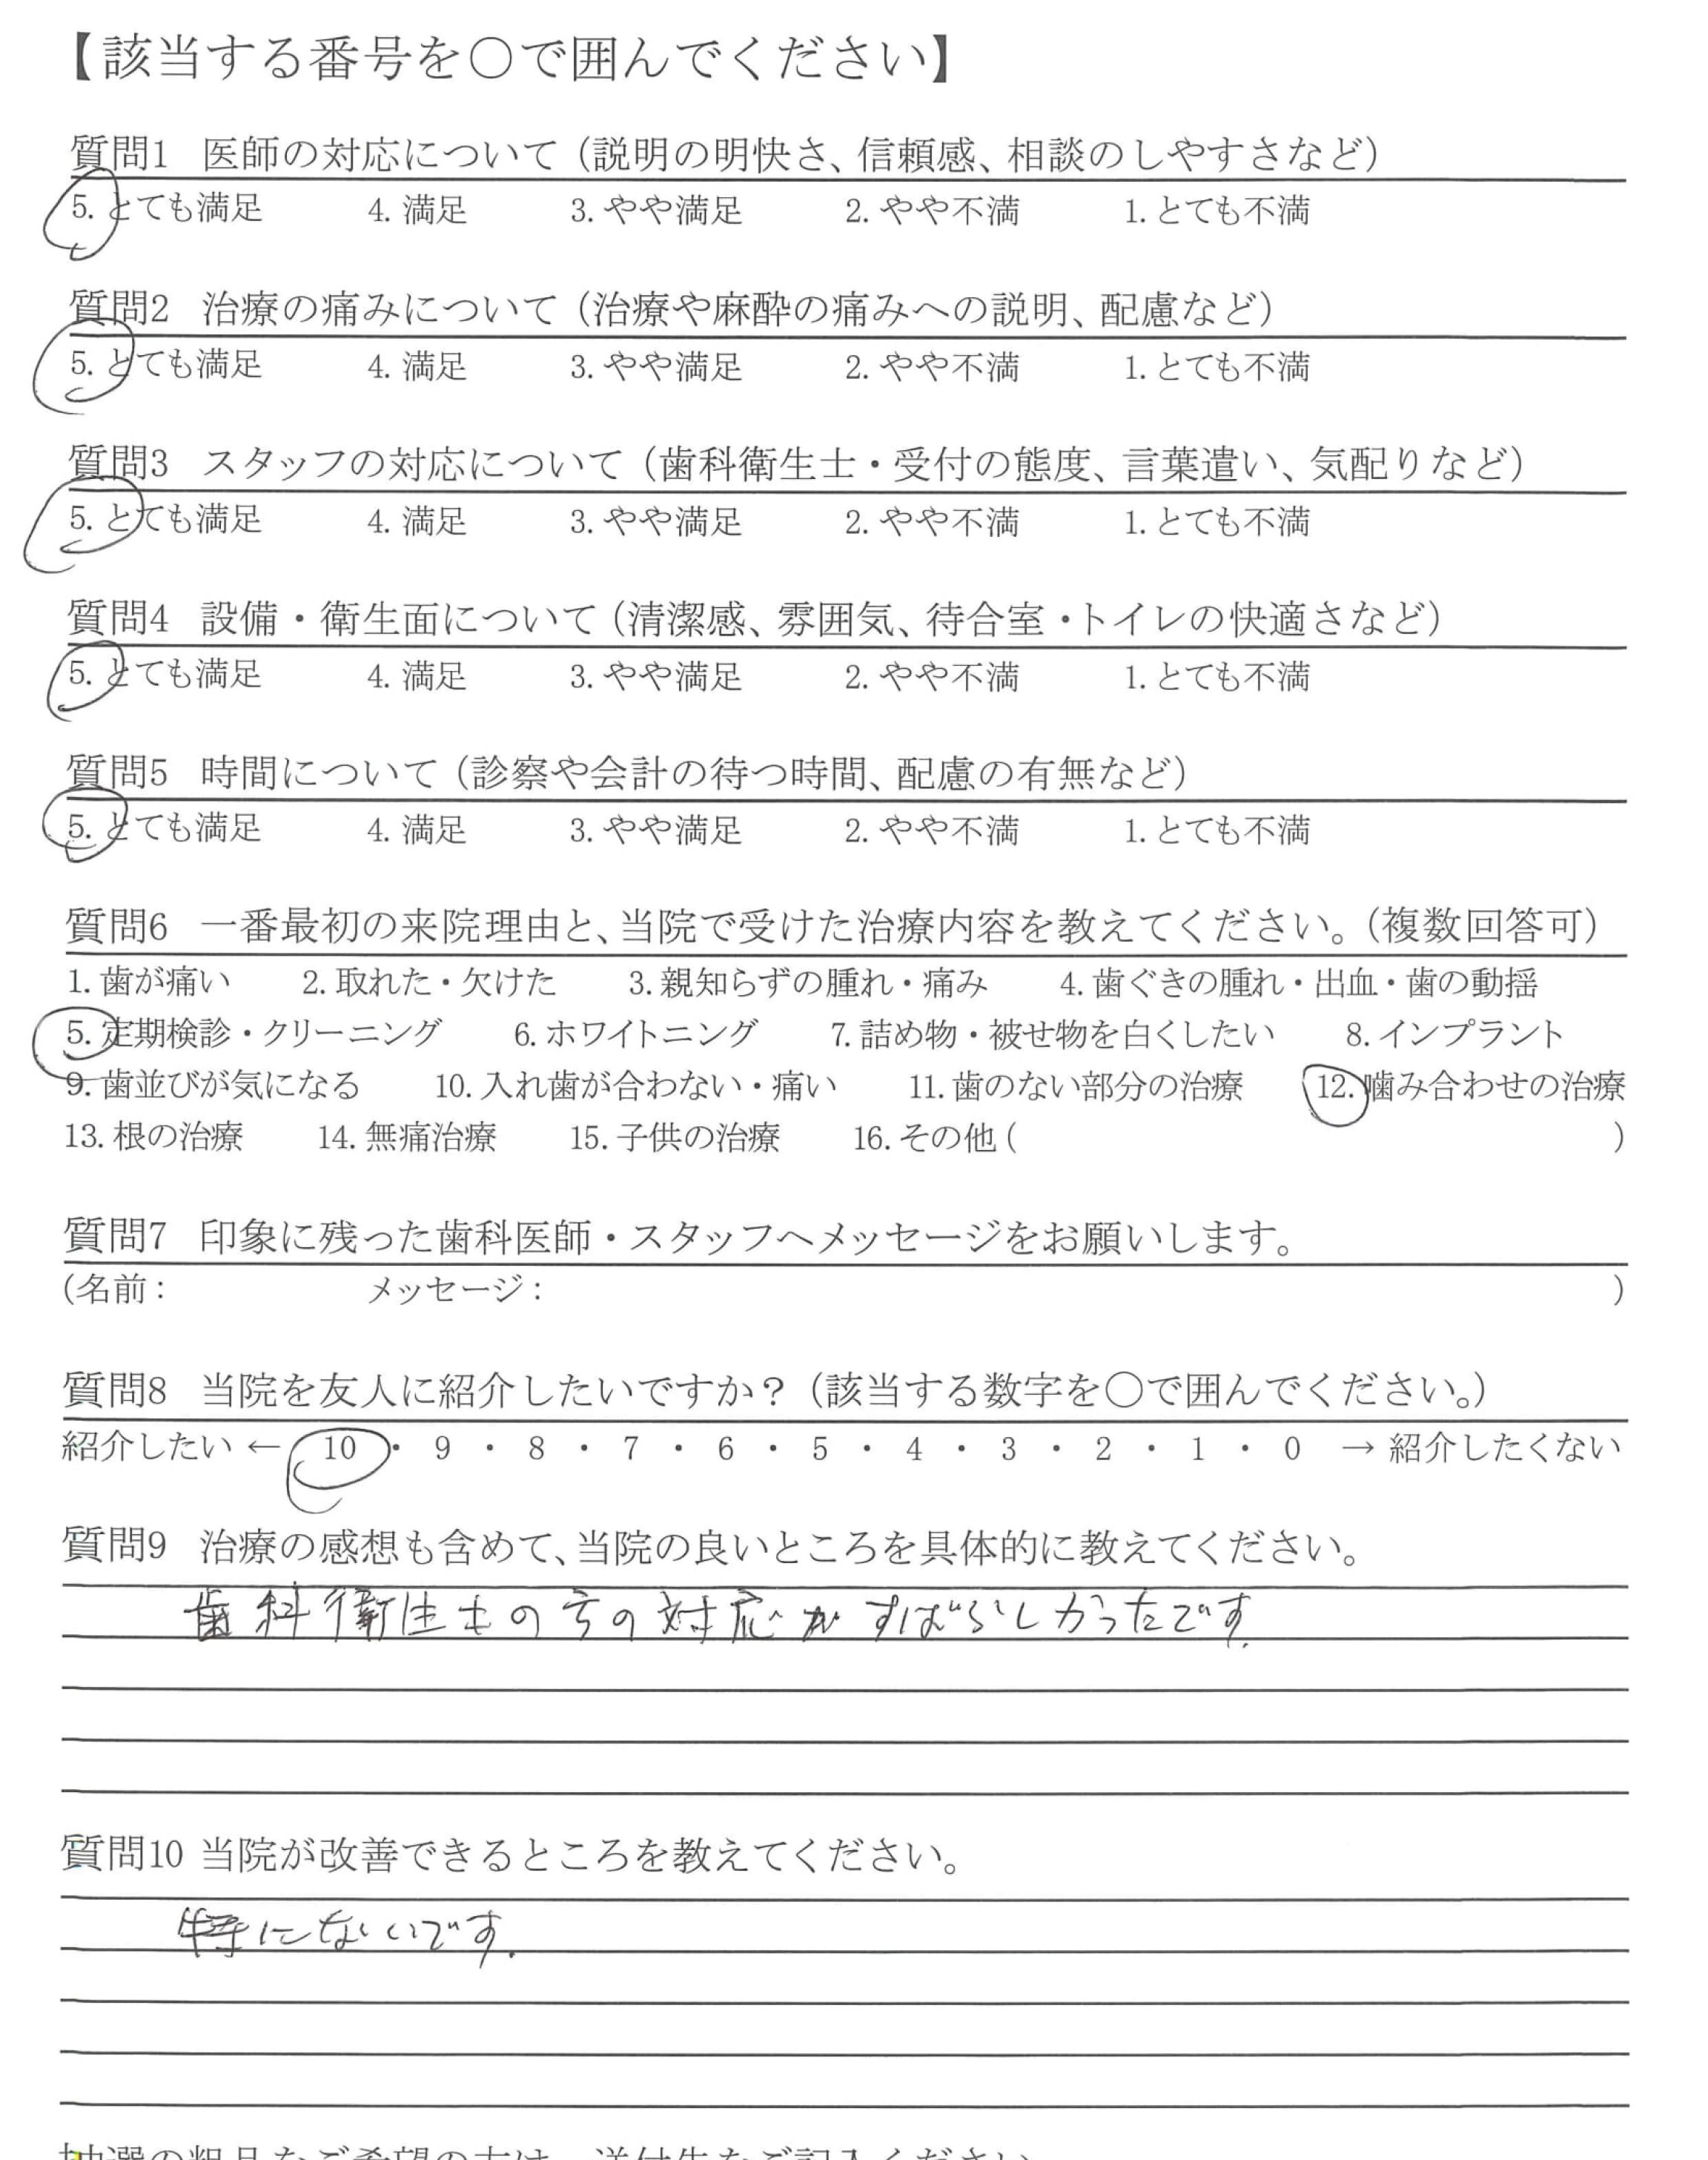 【該当する番号を○で囲んでください】
質問1 医師の対応について（説明の明快さ、信頼感、相談のしやすさなど）
5. とても満足 4. 満足 3. やや満足 2. やや不満 1. とても不満
質問2 治療の痛みについて（治療や麻酔の痛みへの説明、配慮など）
5. とても満足 4. 満足 3. やや満足 2. やや不満 1. とても不満
質問3 スタッフの対応について（歯科衛生士・受付の態度、言葉遣い、気配りなど）
5. とても満足 4. 満足 3. やや満足 2. やや不満 1. とても不満
質問4 設備・衛生面について（清潔感、雰囲気、待合室・トイレの快適さなど）
5. とても満足 4. 満足 3. やや満足 2. やや不満 1. とても不満
質問5 時間について（診察や会計の待つ時間、配慮の有無など）
5. とても満足 4. 満足 3. やや満足 2. やや不満 1. とても不満
質問6 一番最初の来院理由と、当院で受けた治療内容を教えてください。（複数回答可）
1. 歯が痛い 2. 取れた・欠けた 3. 親知らずの腫れ・痛み 4. 歯ぐきの腫れ・出血・歯の動揺
5. 定期検診・クリーニング 6. ホワイトニング 7. 詰め物・被せ物を白くしたい 8. インプラント
9. 歯並びが気になる 10. 入れ歯が合わない・痛い 11. 歯のない部分の治療 12. 噛み合わせの治療
13. 根の治療 14. 無痛治療 15. 子供の治療 16. その他 ( )
質問7 印象に残った歯科医師・スタッフへメッセージをお願いします。
(名前： メッセージ： )
質問8 当院を友人に紹介したいですか？（該当する数字を○で囲んでください。）
紹介したい ← 10 ・ 9 ・ 8 ・ 7 ・ 6 ・ 5 ・ 4 ・ 3 ・ 2 ・ 1 ・ 0 → 紹介したくない
質問9 治療の感想も含めて、当院の良いところを具体的に教えてください。
歯科衛生士の方の対応がすばらしかったです.
質問10 当院が改善できるところを教えてください。
特にないです.
抽選の粗品をご希望の方は、送付先をご記入ください